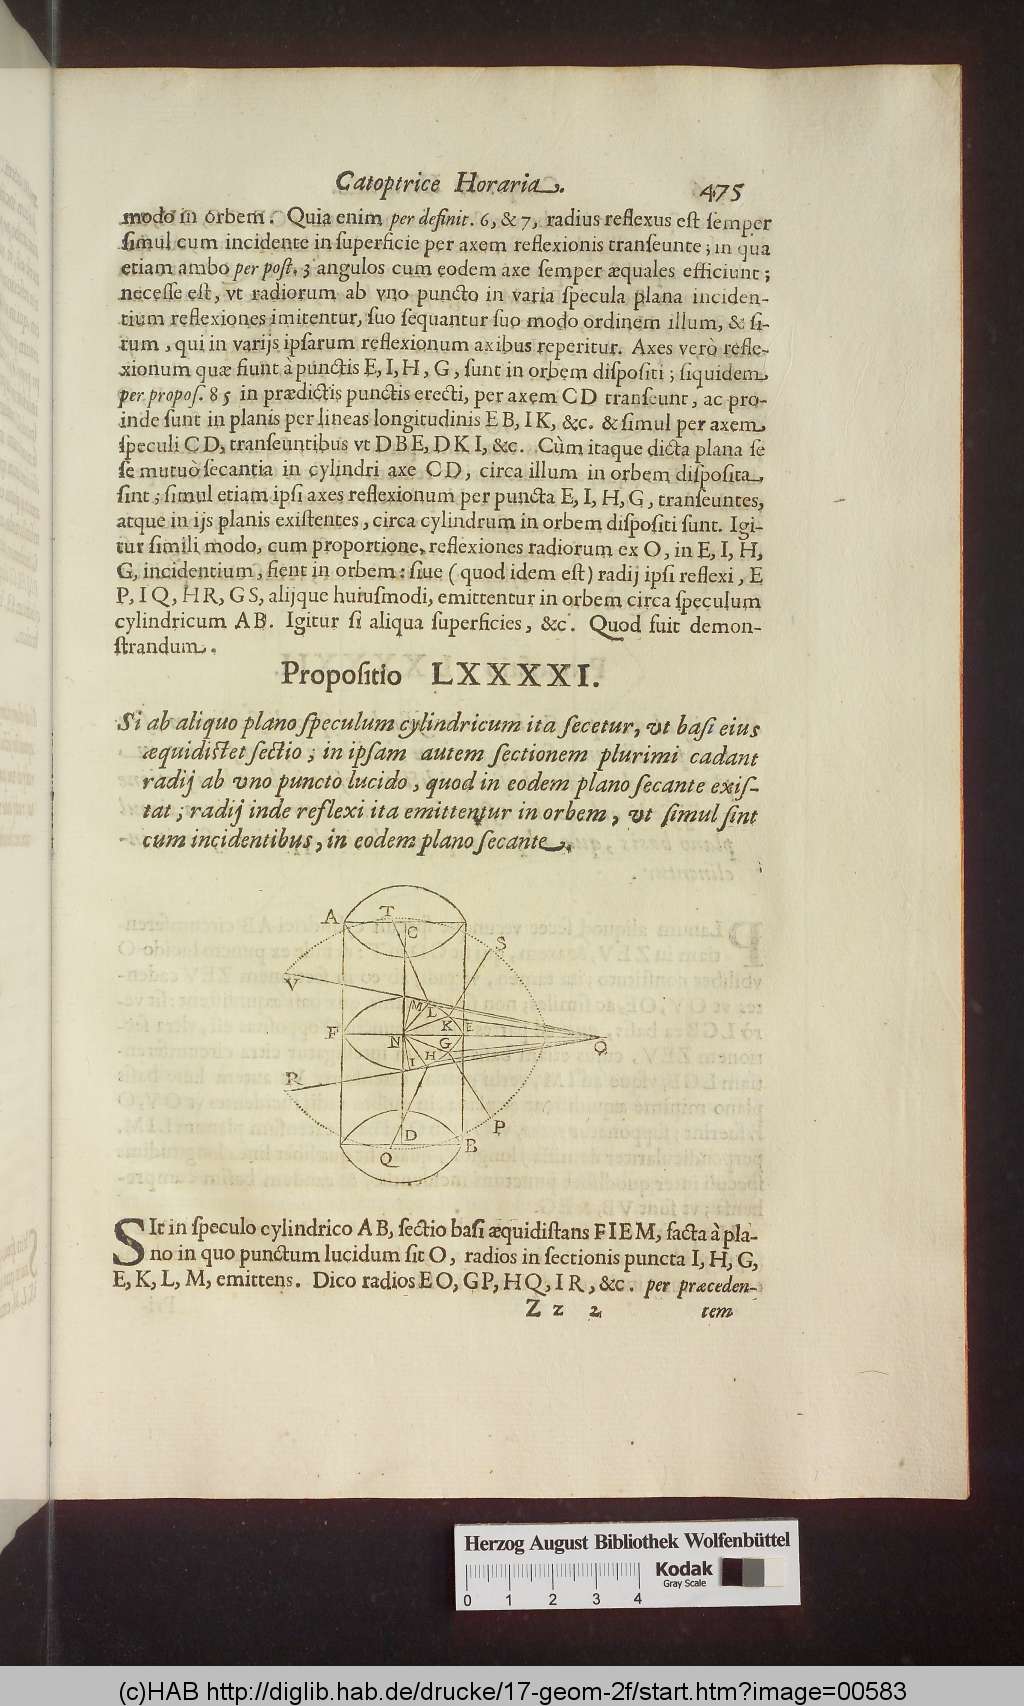 Catoptrice Horaria. 475
modo in orbem. Quia enim per definit. 6, & 7, radius reflexus est semper
simul cum incidente in superficie per axem reflexionis transeunte; in qua
etiam ambo per post. 3 angulos cum eodem axe semper æquales efficiunt;
necesse est, vt radiorum ab vno puncto in varia specula plana inciden-
tium reflexiones imitentur, suo sequantur suo modo ordinem illum, & si-
tum, qui in varijs ipsarum reflexionum axibus reperitur. Axes verò refle-
xionum quæ fiunt à punctis E, I, H, G, sunt in orbem dispositi; siquidem
per propos. 85 in prædictis punctis erecti, per axem CD transeunt, ac pro-
inde sunt in planis per lineas longitudinis EB, IK, &c. & simul per axem
speculi CD, transeuntibus vt DBE, DKI, &c. Cùm itaque dicta plana se
se mutuò secantia in cylindri axe CD, circa illum in orbem disposita
sint; simul etiam ipsi axes reflexionum per puncta E, I, H, G, transeuntes,
atque in ijs planis existentes, circa cylindrum in orbem dispositi sunt. Igi-
tur simili modo, cum proportione, reflexiones radiorum ex O, in E, I, H,
G, incidentium, fient in orbem: siue (quod idem est) radij ipsi reflexi, E
P, IQ, HR, GS, alijque huiusmodi, emittentur in orbem circa speculum
cylindricum AB. Igitur si aliqua superficies, &c. Quod fuit demon-
strandum.
Propositio LXXXXI.
Si ab aliquo plano speculum cylindricum ita secetur, vt basi eius
æquidistet sectio; in ipsam autem sectionem plurimi cadant
radij ab vno puncto lucido, quod in eodem plano secante exis-
tat; radij inde reflexi ita emittentur in orbem, vt simul sint
cum incidentibus, in eodem plano secante.
A T
C
S
V
M
L
K
F N E
G O
I H
R
D P
Q B
SIt in speculo cylindrico AB, sectio basi æquidistans FIEM, facta à pla-
no in quo punctum lucidum sit O, radios in sectionis puncta I, H, G,
E, K, L, M, emittens. Dico radios EO, GP, HQ, IR, &c. per præceden-
Zz 2 tem
Herzog August Bibliothek Wolfenbüttel
Kodak
Gray Scale
0 1 2 3 4
(c)HAB http://diglib.hab.de/drucke/17-geom-2f/start.htm?image=00583